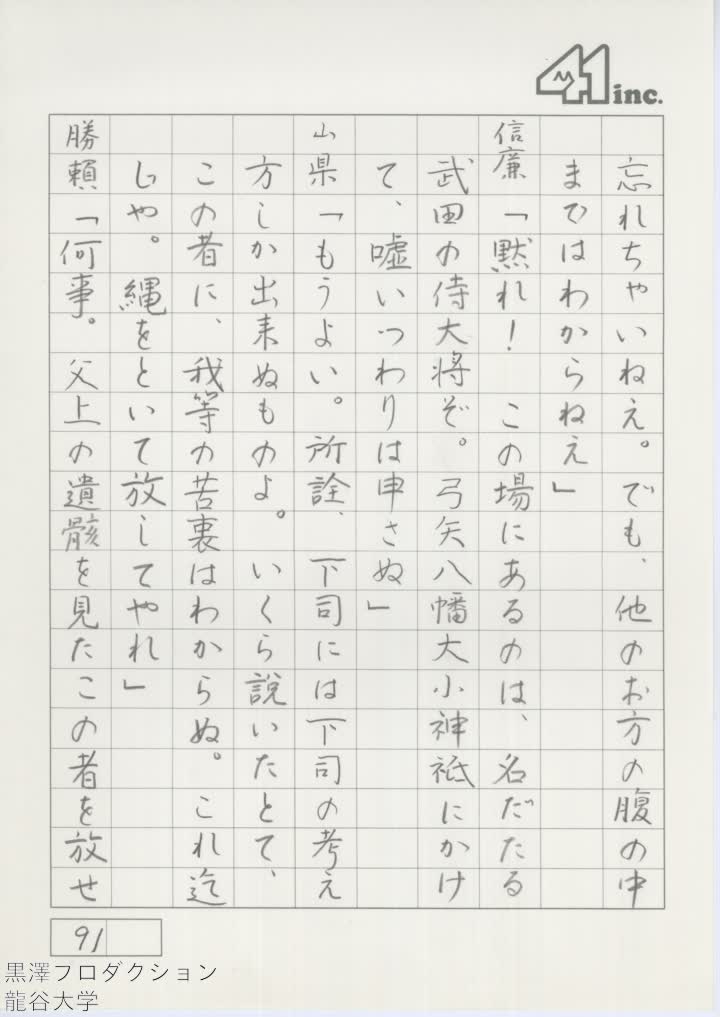 41 inc.
忘れちゃいねえ。でも、他のお方の腹の中
まではわからねえ」
信廉「黙れ！　この場にあるのは、名だたる
武田の侍大将ぞ。弓矢八幡大小神祇にかけ
て、嘘いつわりは申さぬ」
山県「もうよい。所詮、下司には下司の考え
方しか出来ぬものよ。いくら説いたとて、
この者に、我等の苦裏はわからぬ。これ迄
じゃ。縄をといて放してやれ」
勝頼「何事。父上の遺骸を見たこの者を放せ
91
黒澤プロダクション
龍谷大学